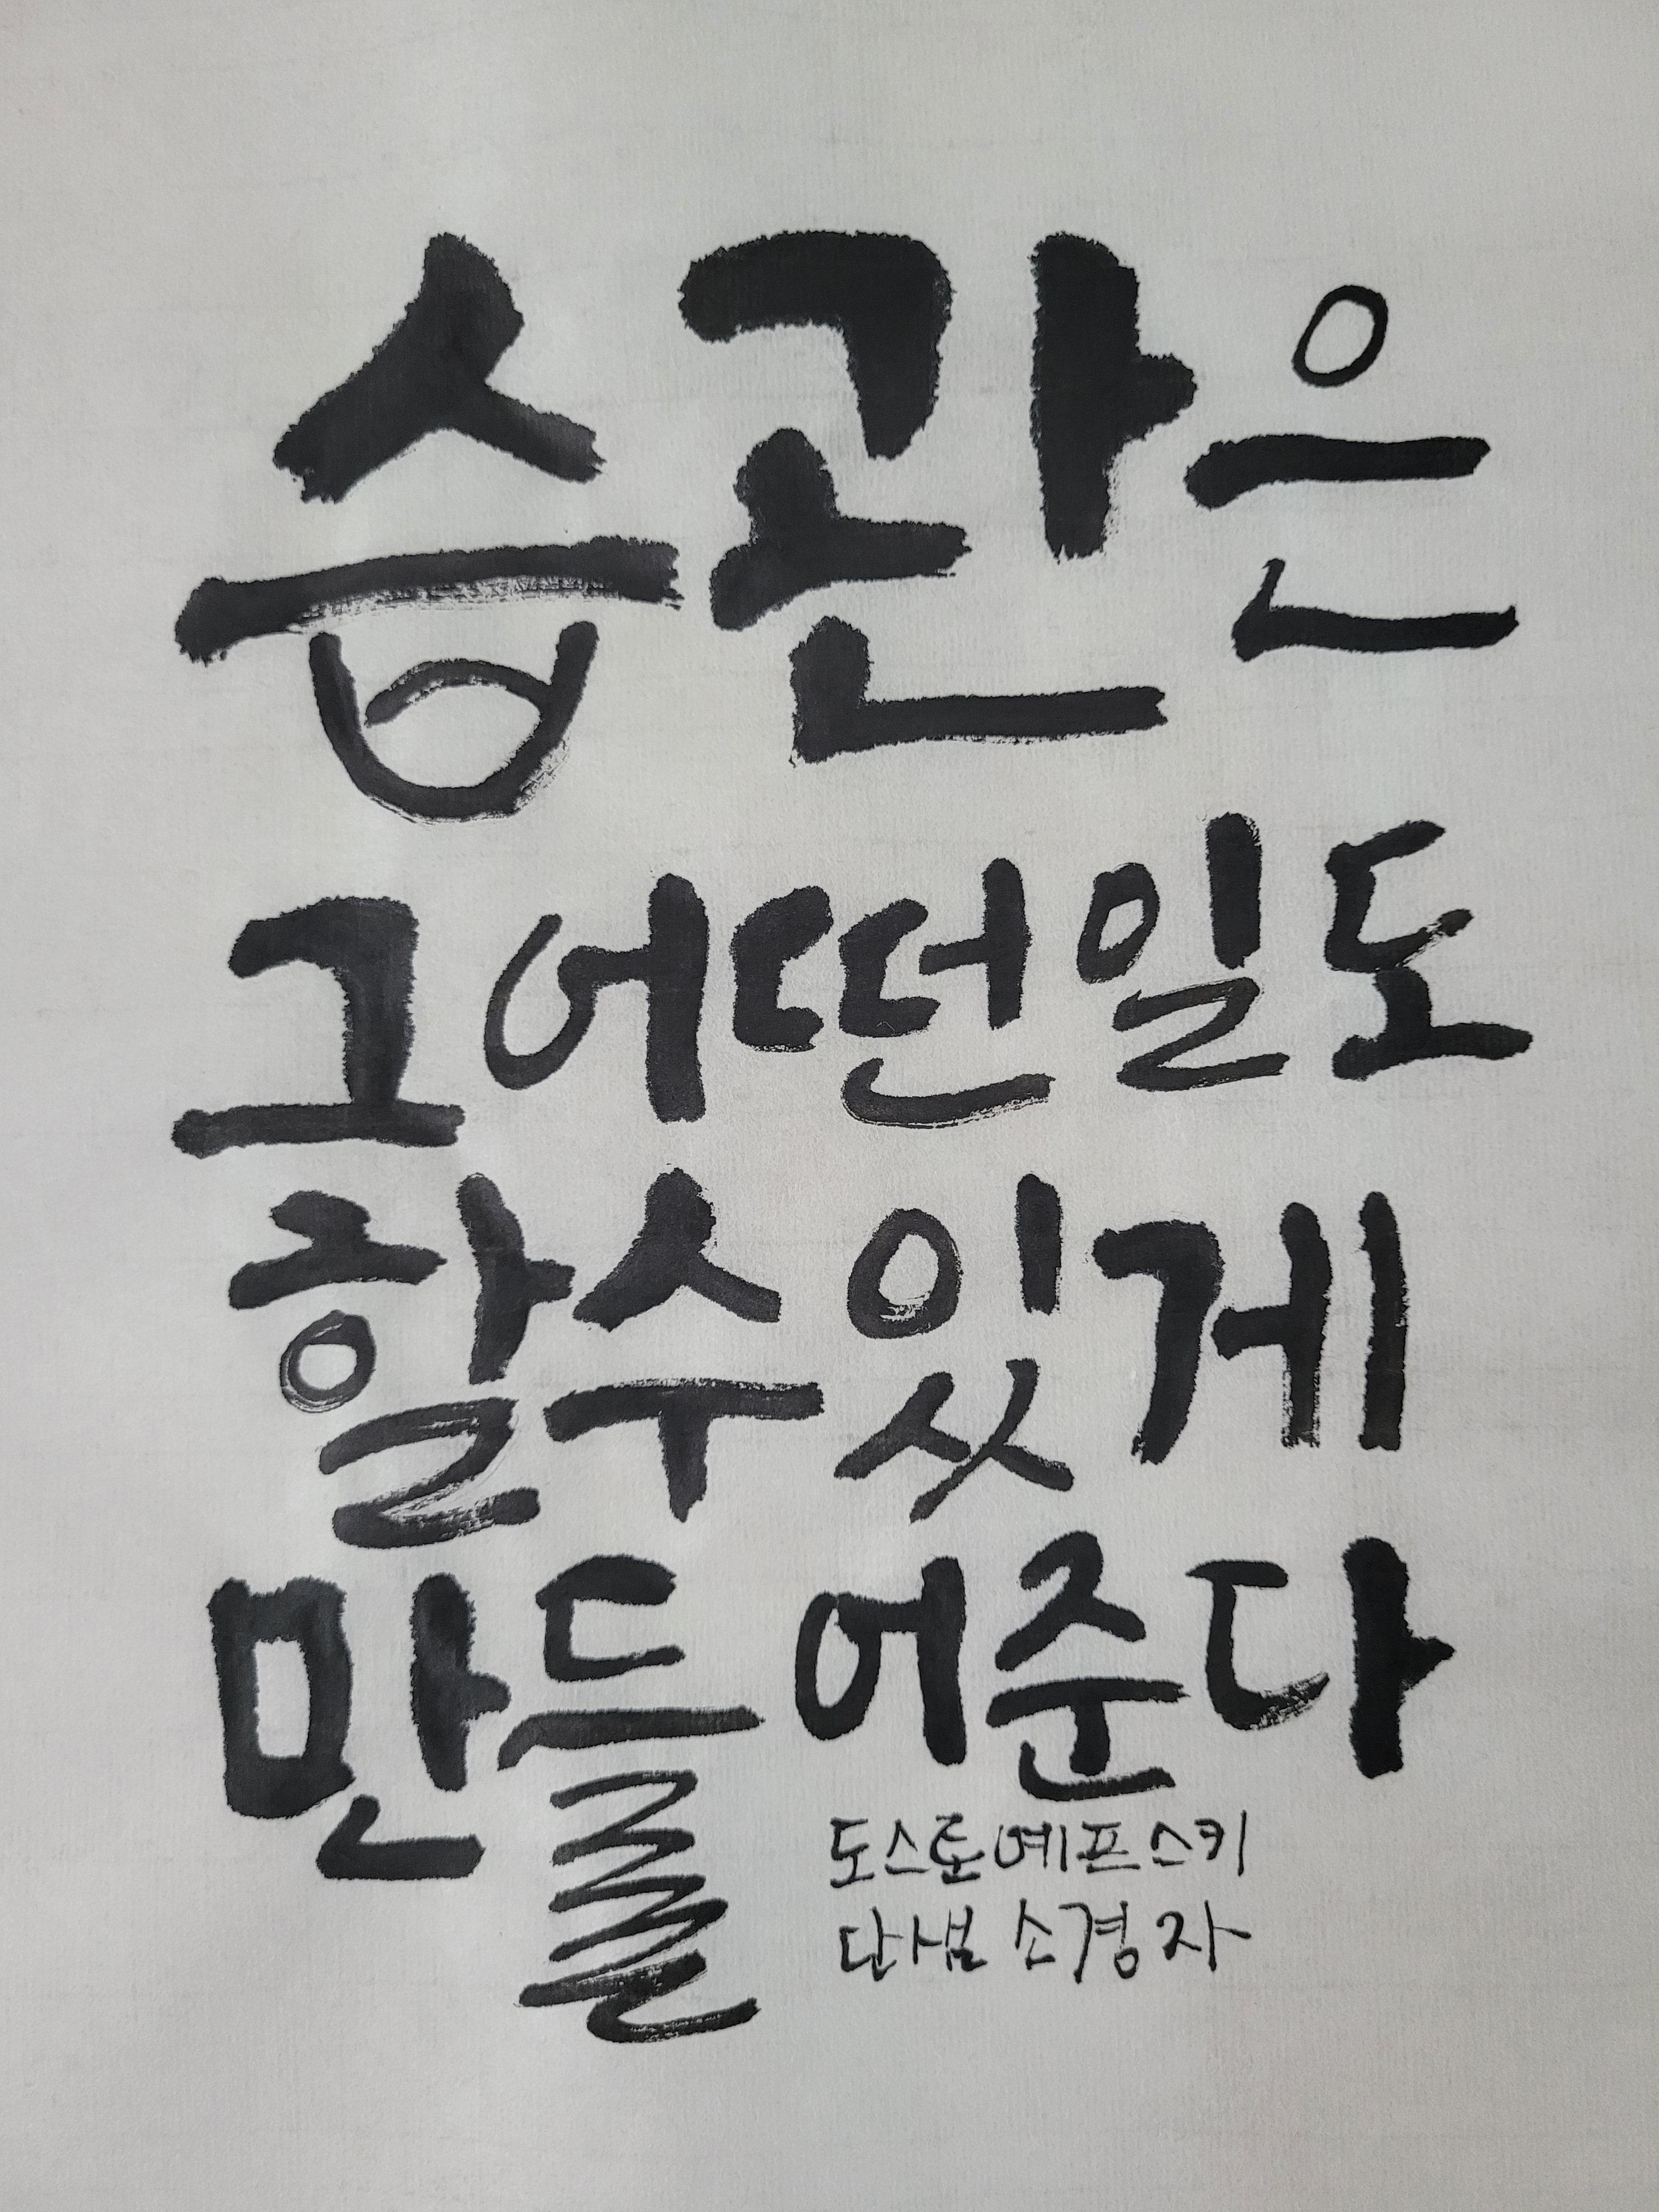 습관은
그어떤일도
할수있게
만들어준다
도스토예프스키
단샘 소경자